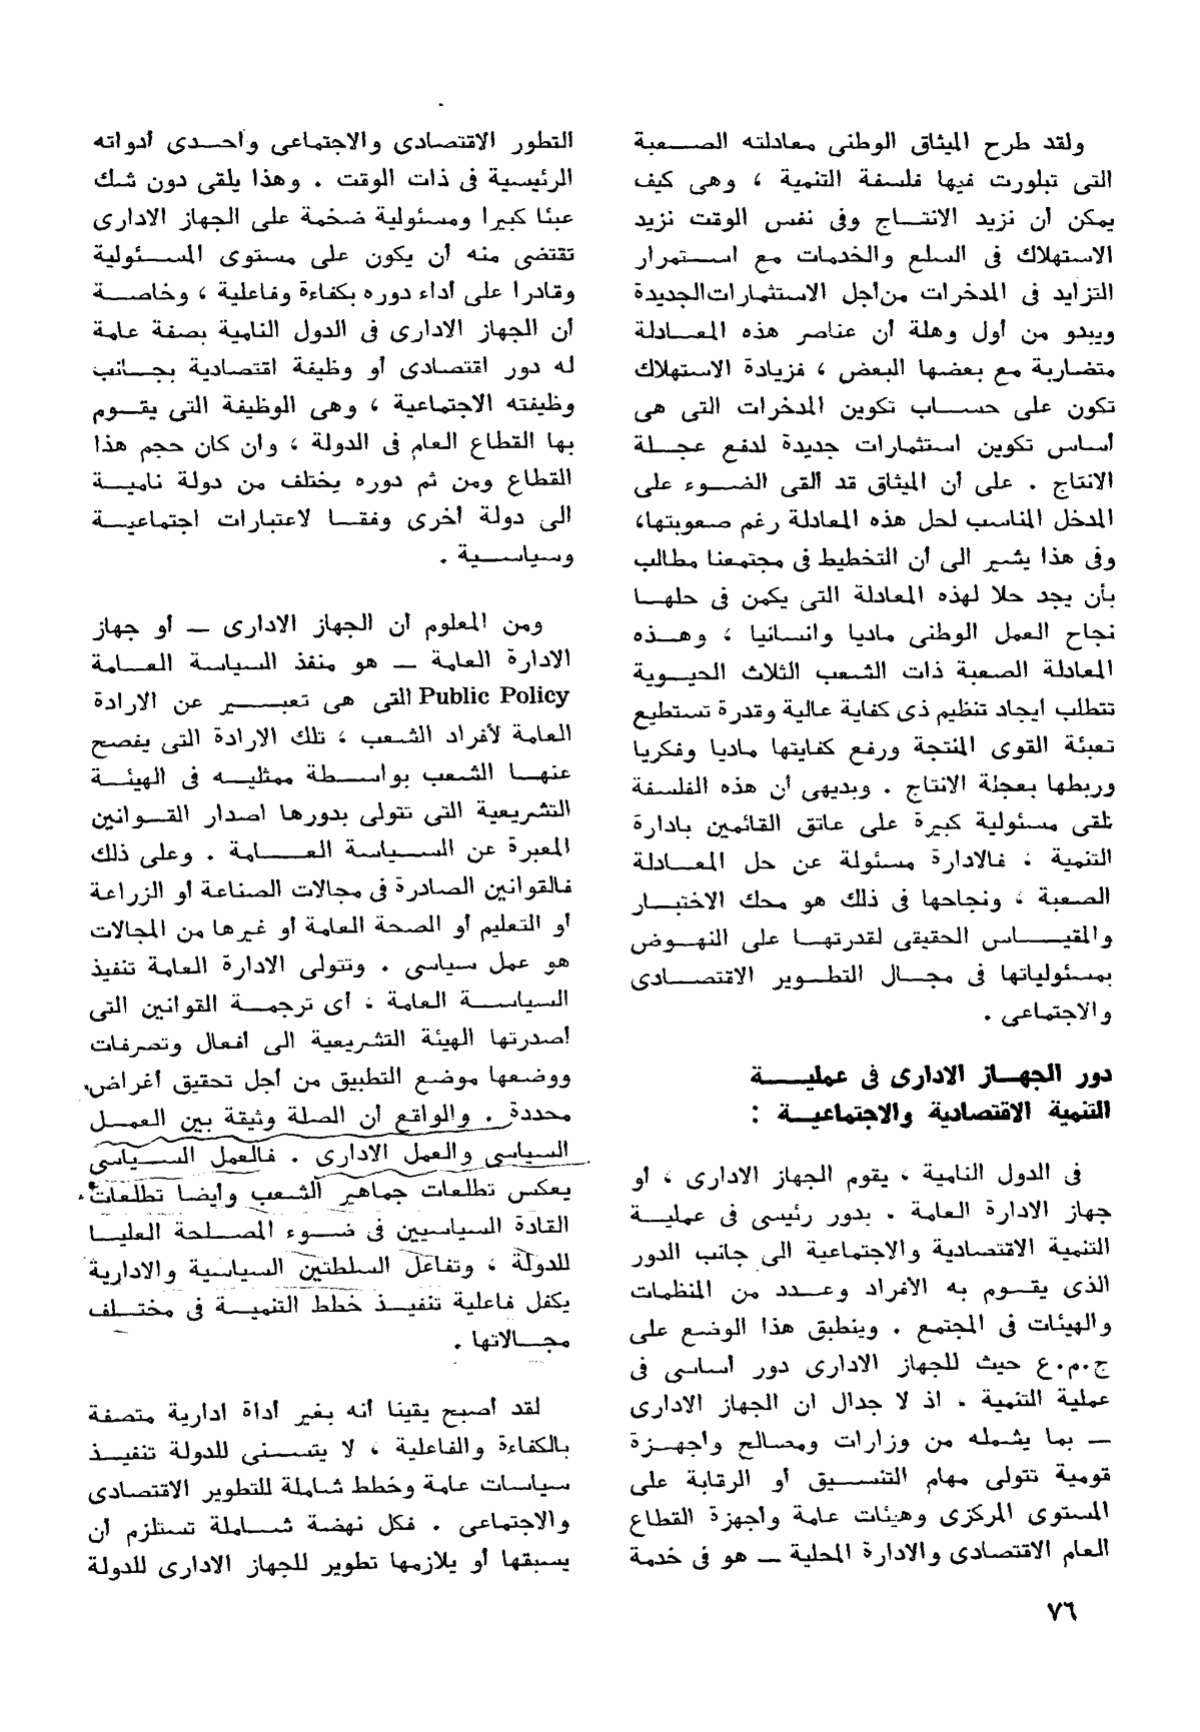 ولقد طرح الميثاق الوطنى معادلته الصعبة
التى تبلورت فيها فلسفة التنمية ، وهى كيف
يمكن أن نزيد الانتاج وفى نفس الوقت نزيد
الاستهلاك فى السلع والخدمات مع استمرار
التزايد فى المدخرات من أجل الاستثمارات الجديدة
ويبدو من أول وهلة أن عناصر هذه المعادلة
متضاربة مع بعضها البعض ، فزيادة الاستهلاك
تكون على حساب تكوين المدخرات التى هى
أساس تكوين استثمارات جديدة لدفع عجلة
الانتاج . على أن الميثاق قد ألقى الضوء على
المدخل المناسب لحل هذه المعادلة رغم صعوبتها،
وفى هذا يشير الى أن التخطيط فى مجتمعنا مطالب
بأن يجد حلا لهذه المعادلة التى يكمن فى حلها
نجاح العمل الوطنى ماديا وانسانيا ، وهذه
المعادلة الصعبة ذات الشعب الثلاث الحيوية
تتطلب ايجاد تنظيم ذى كفاية عالية وقدرة تستطيع
تعبئة القوى المنتجة ورفع كفايتها ماديا وفكريا
وربطها بعجلة الانتاج . وبديهى أن هذه الفلسفة
تلقى مسئولية كبيرة على عاتق القائمين بادارة
التنمية ، فالادارة مسئولة عن حل المعادلة
الصعبة ، ونجاحها فى ذلك هو محك الاختبار
والمقياس الحقيقى لقدرتها على النهوض
بمسئولياتها فى مجال التطوير الاقتصادى
والاجتماعى .
دور الجهاز الادارى فى عملية
التنمية الاقتصادية والاجتماعية :
فى الدول النامية ، يقوم الجهاز الادارى ، أو
جهاز الادارة العامة . بدور رئيسى فى عملية
التنمية الاقتصادية والاجتماعية الى جانب الدور
الذى يقوم به الأفراد وعدد من المنظمات
والهيئات فى المجتمع . وينطبق هذا الوضع على
ج.م.ع حيث للجهاز الادارى دور أساسى فى
عملية التنمية . اذ لا جدال ان الجهاز الادارى
— بما يشمله من وزارات ومصالح وأجهزة
قومية تتولى مهام التنسيق أو الرقابة على
المستوى المركزى وهيئات عامة وأجهزة القطاع
العام الاقتصادى والادارة المحلية — هو فى خدمة
التطور الاقتصادى والاجتماعى واحدى أدواته
الرئيسية فى ذات الوقت . وهذا يلقى دون شك
عبئا كبيرا ومسئولية ضخمة على الجهاز الادارى
تقتضى منه أن يكون على مستوى المسئولية
وقادرا على أداء دوره بكفاءة وفاعلية ، وخاصة
أن الجهاز الادارى فى الدول النامية بصفة عامة
له دور اقتصادى أو وظيفة اقتصادية بجانب
وظيفته الاجتماعية ، وهى الوظيفة التى يقوم
بها القطاع العام فى الدولة ، وان كان حجم هذا
القطاع ومن ثم دوره يختلف من دولة نامية
الى دولة أخرى وفقا لاعتبارات اجتماعية
وسياسية .
ومن المعلوم أن الجهاز الادارى — أو جهاز
الادارة العامة — هو منفذ السياسة العامة
Public Policy التى هى تعبير عن الارادة
العامة لأفراد الشعب ، تلك الارادة التى يفصح
عنها الشعب بواسطة ممثليه فى الهيئة
التشريعية التى تتولى بدورها اصدار القوانين
المعبرة عن السياسة العامة . وعلى ذلك
فالقوانين الصادرة فى مجالات الصناعة أو الزراعة
أو التعليم أو الصحة العامة أو غيرها من المجالات
هو عمل سياسى . وتتولى الادارة العامة تنفيذ
السياسة العامة ، أى ترجمة القوانين التى
أصدرتها الهيئة التشريعية الى أفعال وتصرفات
ووضعها موضع التطبيق من أجل تحقيق أغراض
محددة . والواقع أن الصلة وثيقة بين العمل
السياسى والعمل الادارى . فالعمل السياسى
يعكس تطلعات جماهير الشعب وأيضا تطلعات
القادة السياسيين فى ضوء المصلحة العليا
للدولة ، وتفاعل السلطتين السياسية والادارية
يكفل فاعلية تنفيذ خطط التنمية فى مختلف
مجالاتها .
لقد أصبح يقينا أنه بغير أداة ادارية متصفة
بالكفاءة والفاعلية ، لا يتسنى للدولة تنفيذ
سياسات عامة وخطط شاملة للتطوير الاقتصادى
والاجتماعى . فكل نهضة شاملة تستلزم أن
يسبقها أو يلازمها تطوير للجهاز الادارى للدولة
٧٦